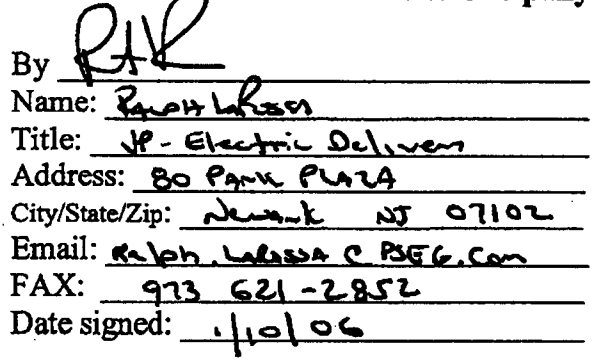 Company
By
Name: Ralph LaRossa
Title: VP - Electric Delivery
Address: 80 PARK PLAZA
City/State/Zip: Newark NJ 07102
Email: Ralph.LaRossa @ PSEG.Com
FAX: 973 621-2852
Date signed: 1/10/06